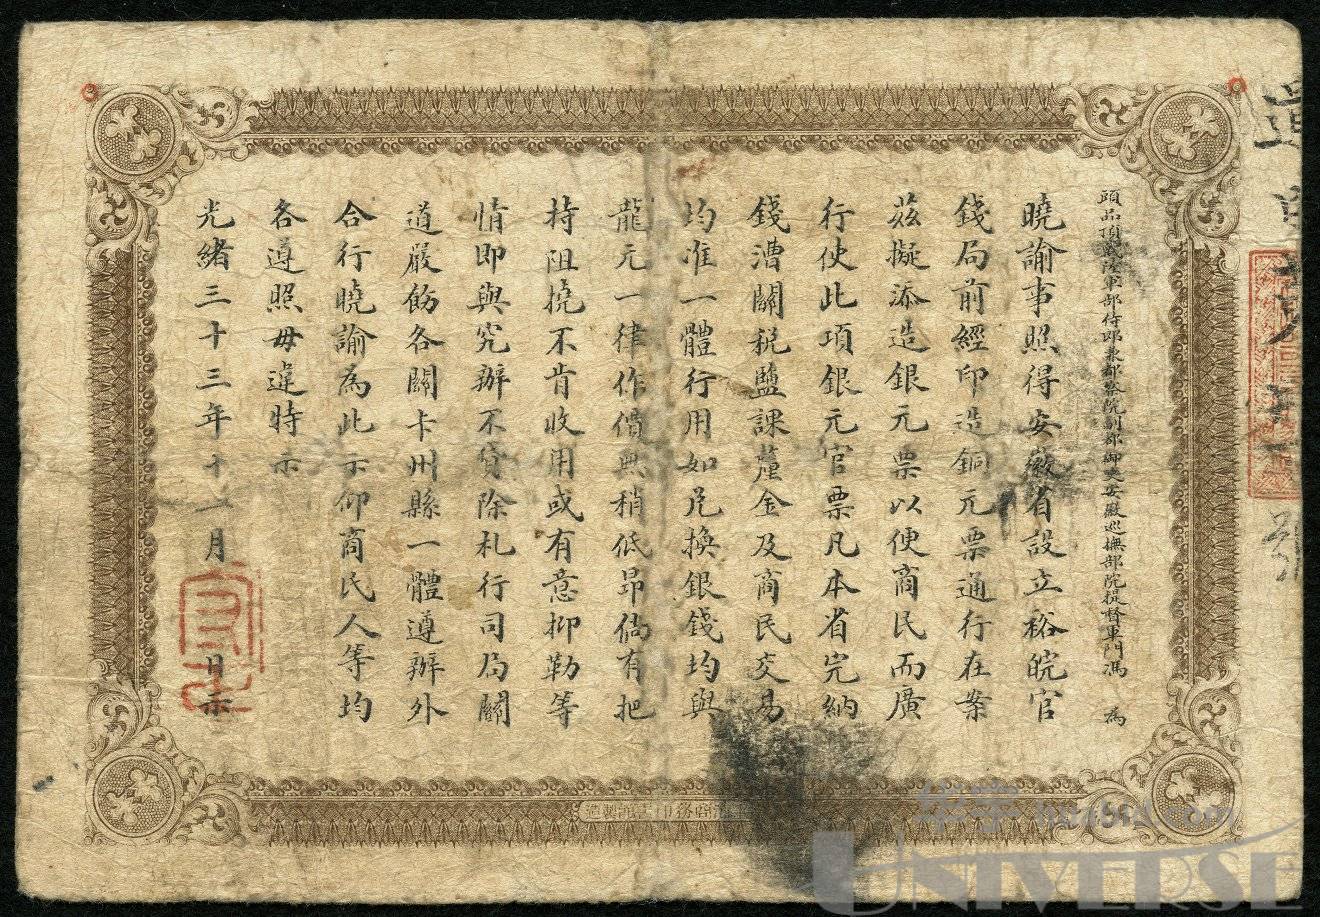 頭品頂戴陸軍部侍郎兼都察院副都御史安徽巡撫部院提督軍門馮 為
曉諭事照得安徽省設立裕皖官
錢局前經印造銅元票通行在案
茲擬添造銀元票以便商民而廣
行使此項銀元官票凡本省完納
錢漕關稅鹽課釐金及商民交易
均准一體行用如兌換銀錢均與
龍元一律作價無稍低昂倘有把
持阻撓不肯收用或有意抑勒等
情即與究辦不貸除札行司局關
道嚴飭各關卡州縣一體遵辦外
合行曉諭為此示仰商民人等均
各遵照毋違時示
光緒三十三年十一月 日示
商務印書館製造
UNIVERSE